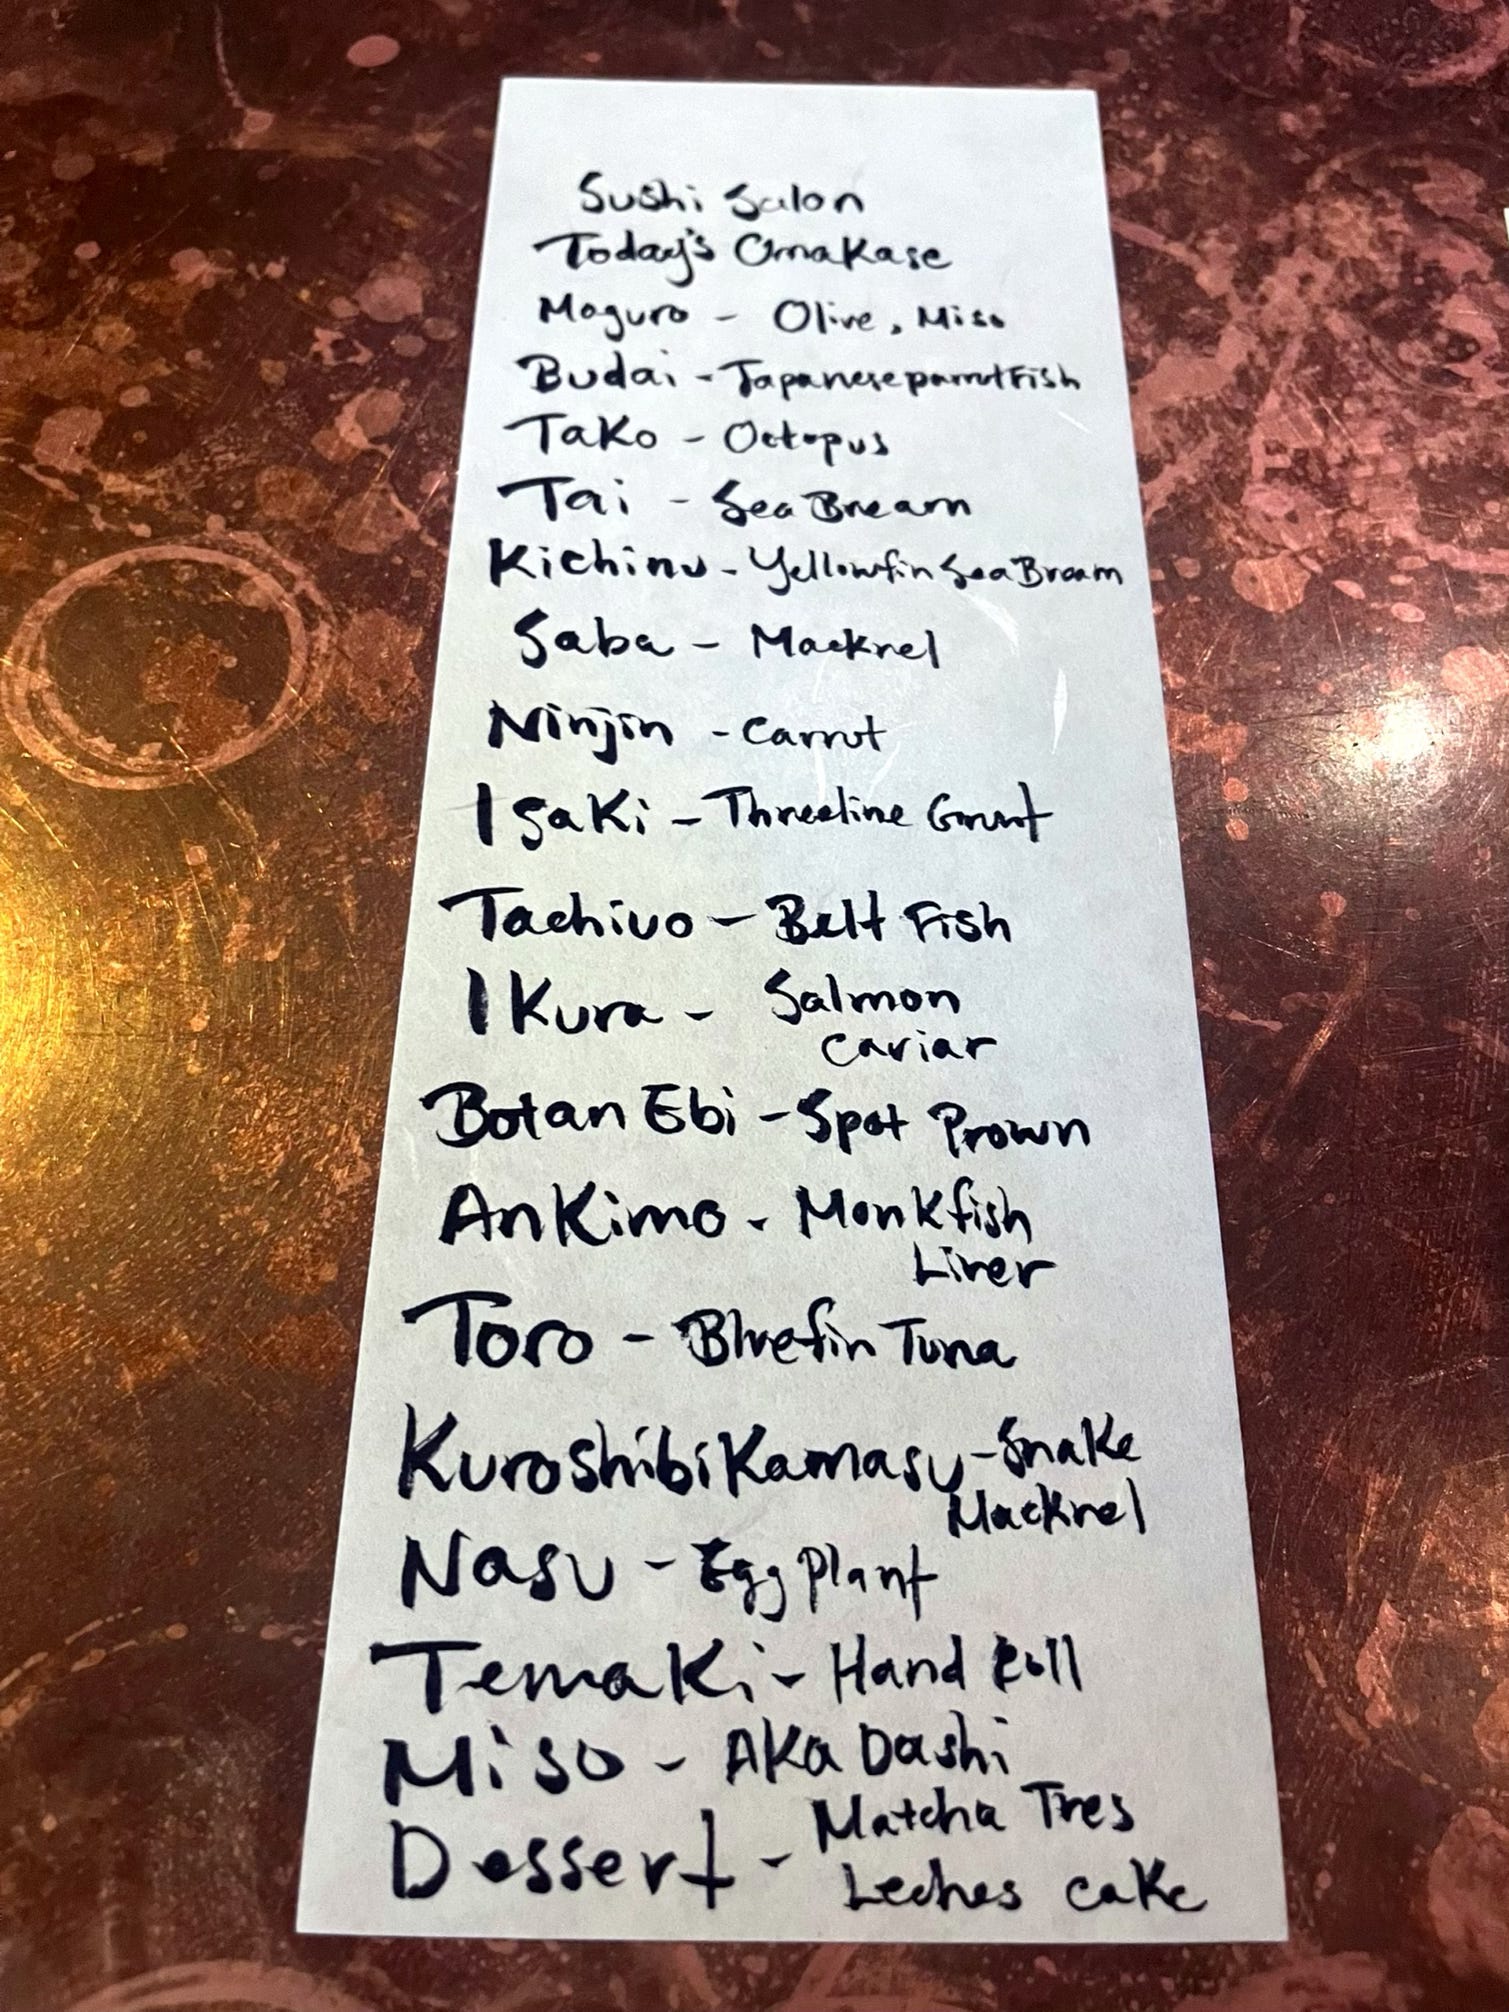 Sushi Salon
Today's Omakase
Maguro - Olive, Miso
Budai - Japanese parrot Fish
Tako - Octopus
Tai - Sea Bream
Kichinu - Yellowfin Sea Bream
Saba - Mackrel
Ninjin - Carrot
Isaki - Threeline Grunt
Tachiuo - Belt Fish
Ikura - Salmon
Caviar
Botan Ebi - Spot Prown
Ankimo - Monkfish
Liver
Toro - Bluefin Tuna
Kuroshibikamasu - Snake
Mackrel
Nasu - Egg Plant
Temaki - Hand Roll
Miso - Aka Dashi
Dessert - Matcha Tres
Leches cake